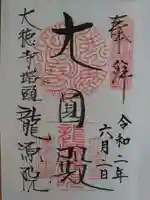 奉拝
令和二年
六月一日
大圓殿
大徳寺塔頭
龍源院